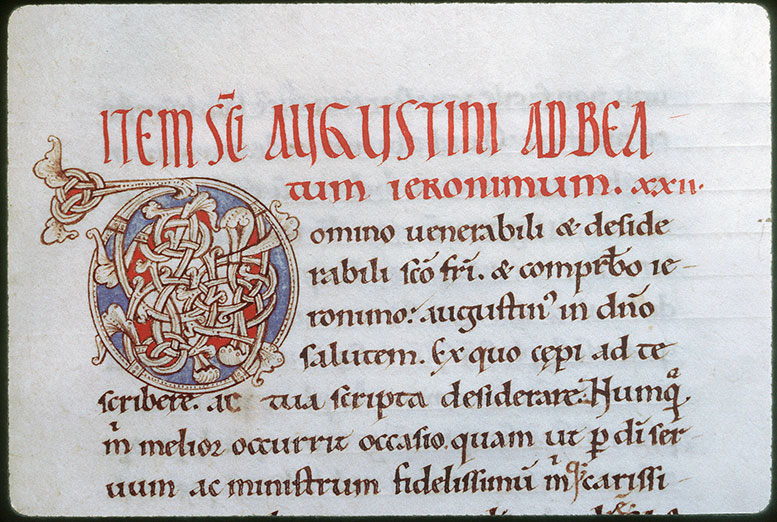 ITEM SC̄I AUGUSTINI AD BEA
TUM IERONIMUM. XXII.
Domino uenerabili & deside
rabili sc̄o frī. & comp̄rb̄o ie-
ronimo: augustin' in dn̄o
salutem. Ex quo cępi ad te
scribere. ac tua scripta desiderare. Numq̄
m̄ melior occurrit occasio. quam ut p̄ di ser-
uum ac ministrum fidelissimū m̄q; carissi